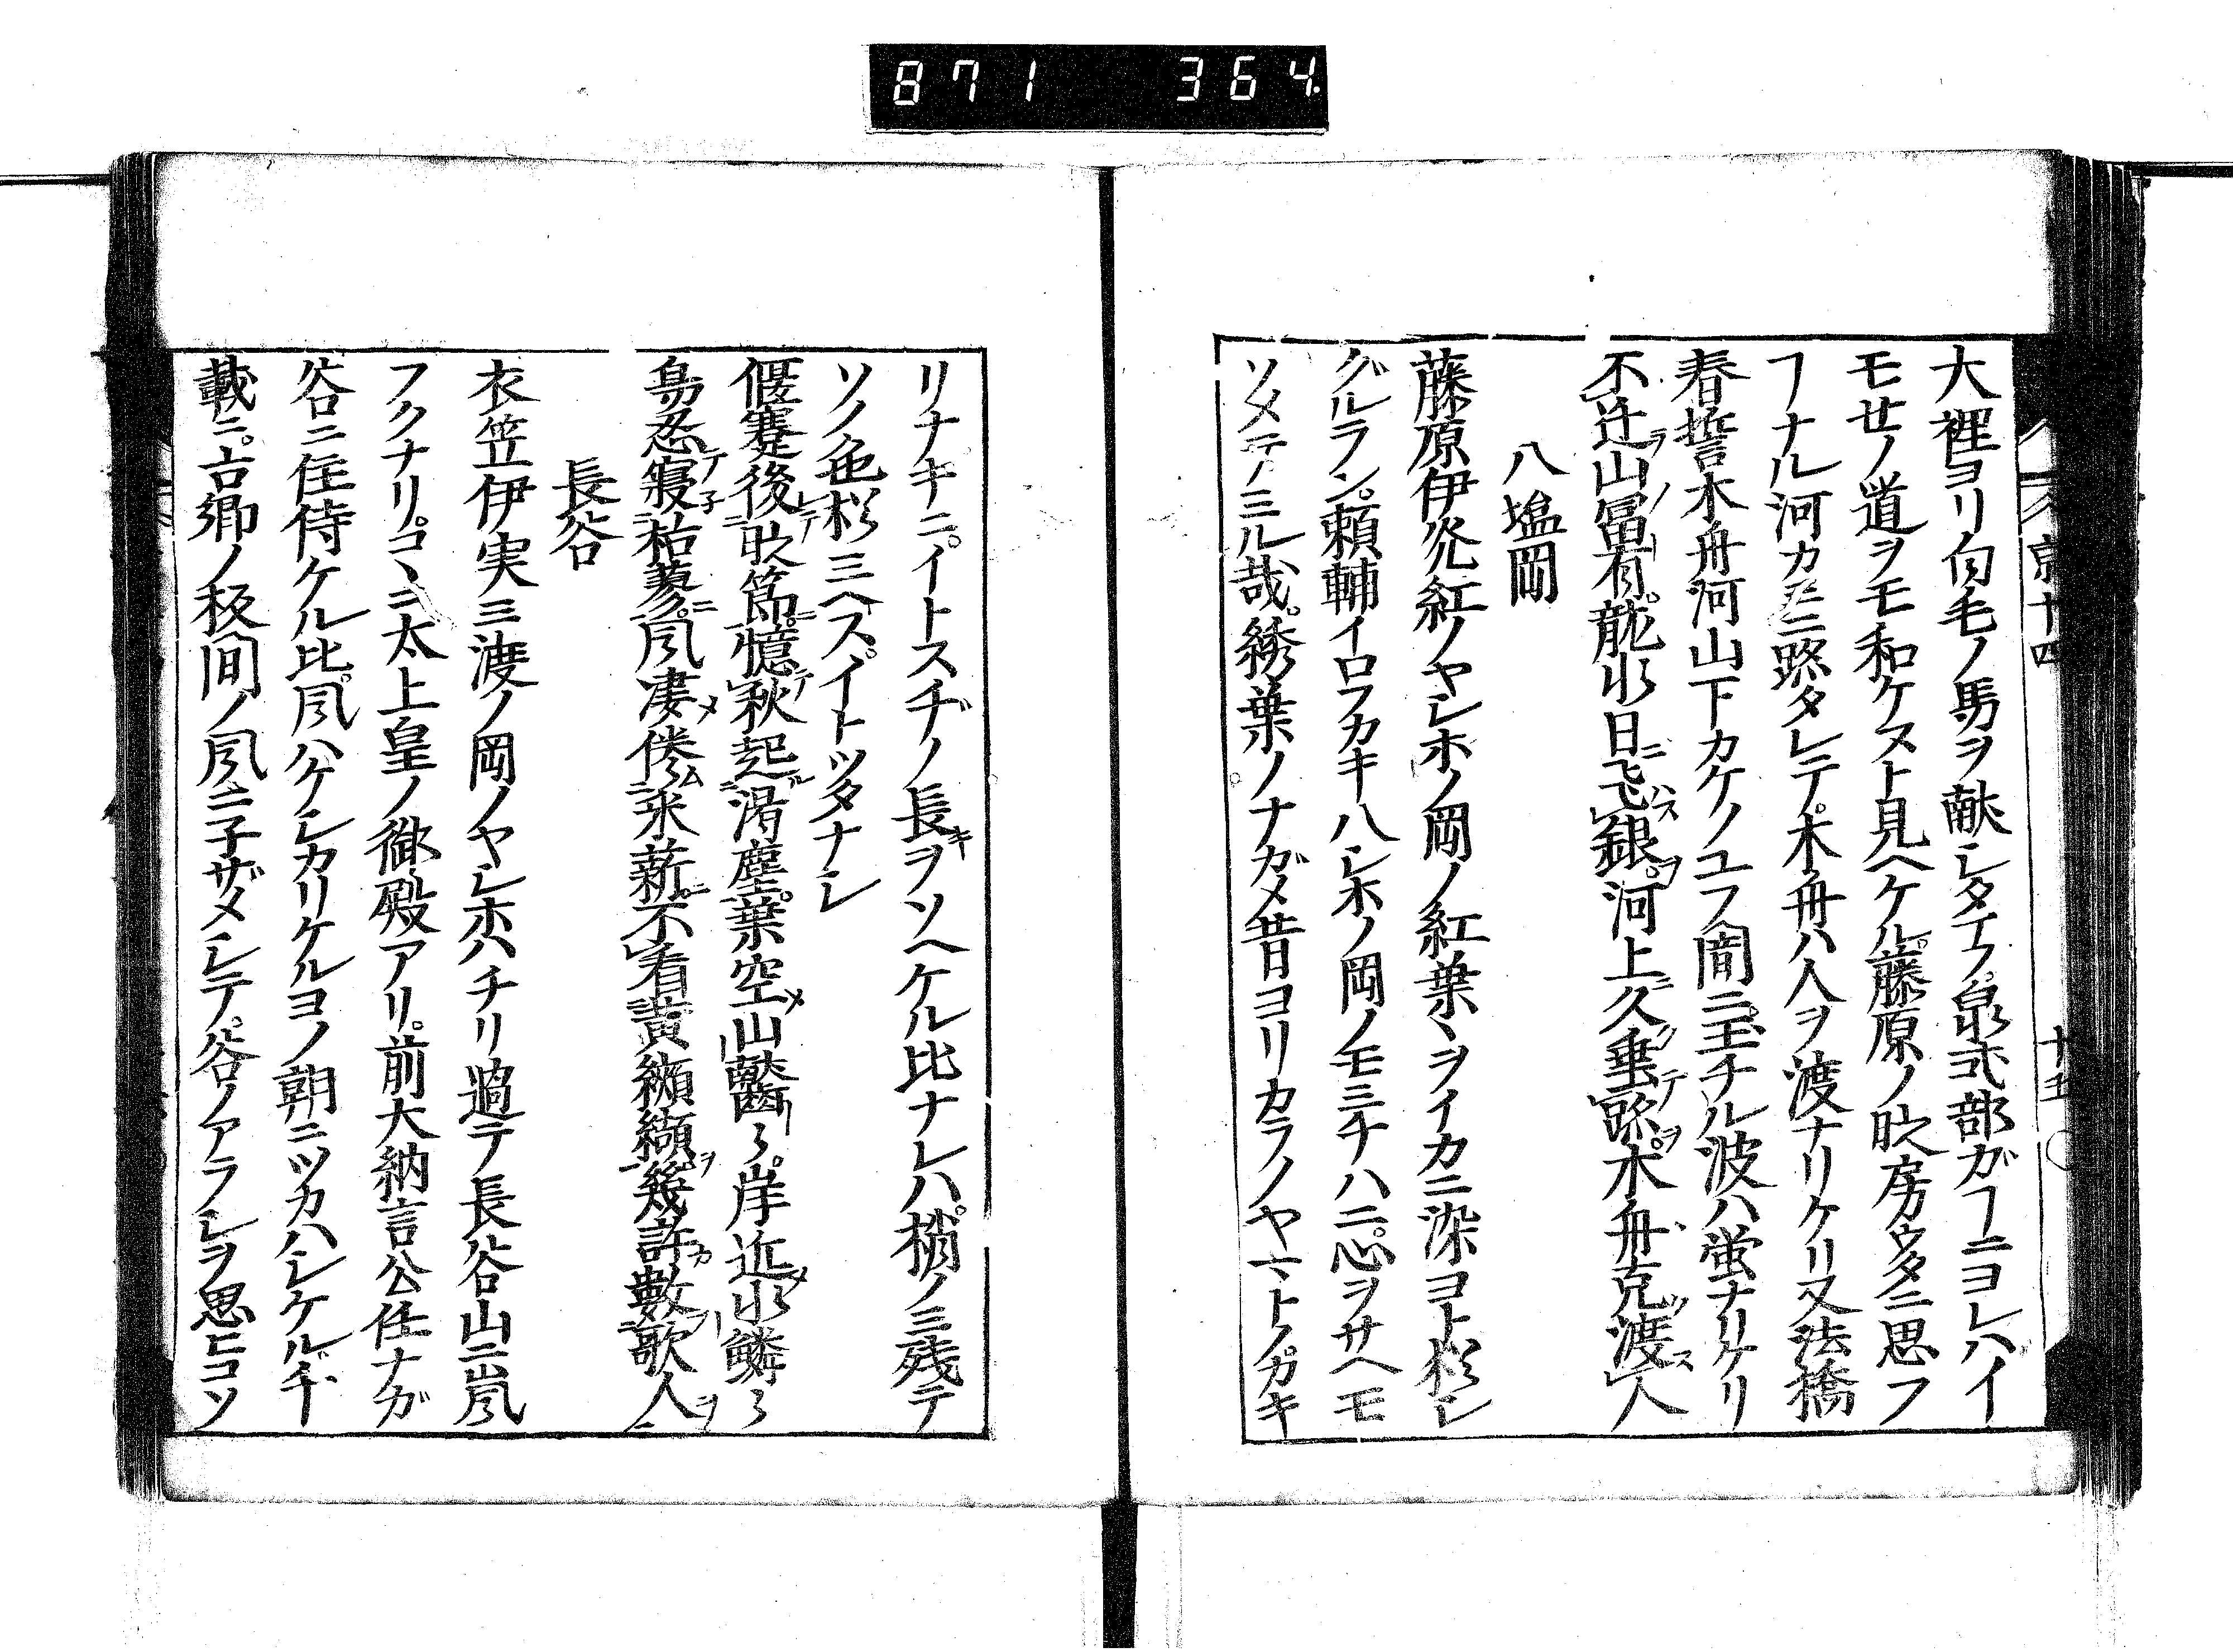 871 364
京十四 十五
大裡ヨリ白毛ノ馬ヲ献シタマフ。泉式部ガフニヨレバイ
モセノ道ヲモ和ケヌト見ヘケル。藤原ノ時房多ニ思フ
フナル河カミニ跡タレテ。木舟ハ人ヲ渡ナリケリ又法橋
春誓木舟河山下カケノユフ闇ニ。玉チル波ハ蛍ナリケリ
不辻山冨有。龍水日飛銀。河上久垂跡。木舟克渡人
八塩岡
藤原伊光紅ノヤシホノ岡ノ紅葉ヽヲイカニ染ヨト杉シ
グルラン。頼輔イロフカキ八シホノ岡ノモミチハニ。心ヲサヘモ
ソメテノミル哉。綉葉ノナガメ昔ヨリカラノヤマトノカキ
リナキニ。イトスヂノ長キヲソヘケル比ナレハ。梢ノミ残テ
ソノ色杉ミヘス。イトツタナシ
偃蹇後時節。憶秋起渚塵。葉空山齾々。岸近水鱗々
鳥忍寝枯蔂。風凄倦米薪。不看黄纐纈幾許數歌人
長谷
衣笠伊実三渡ノ岡ノヤシホハチリ過テ長谷山ニ嵐
フクナリ。コヽニ太上皇ノ御殿アリ。前大納言公任ナガ
谷ニ住侍ケル比。風ハケシカリケルヨノ朝ニツカハシケル。千
載ニ。古郷ノ板間ノ風ニ子ザメシテ。谷ノアラシヲ思ヒコソ